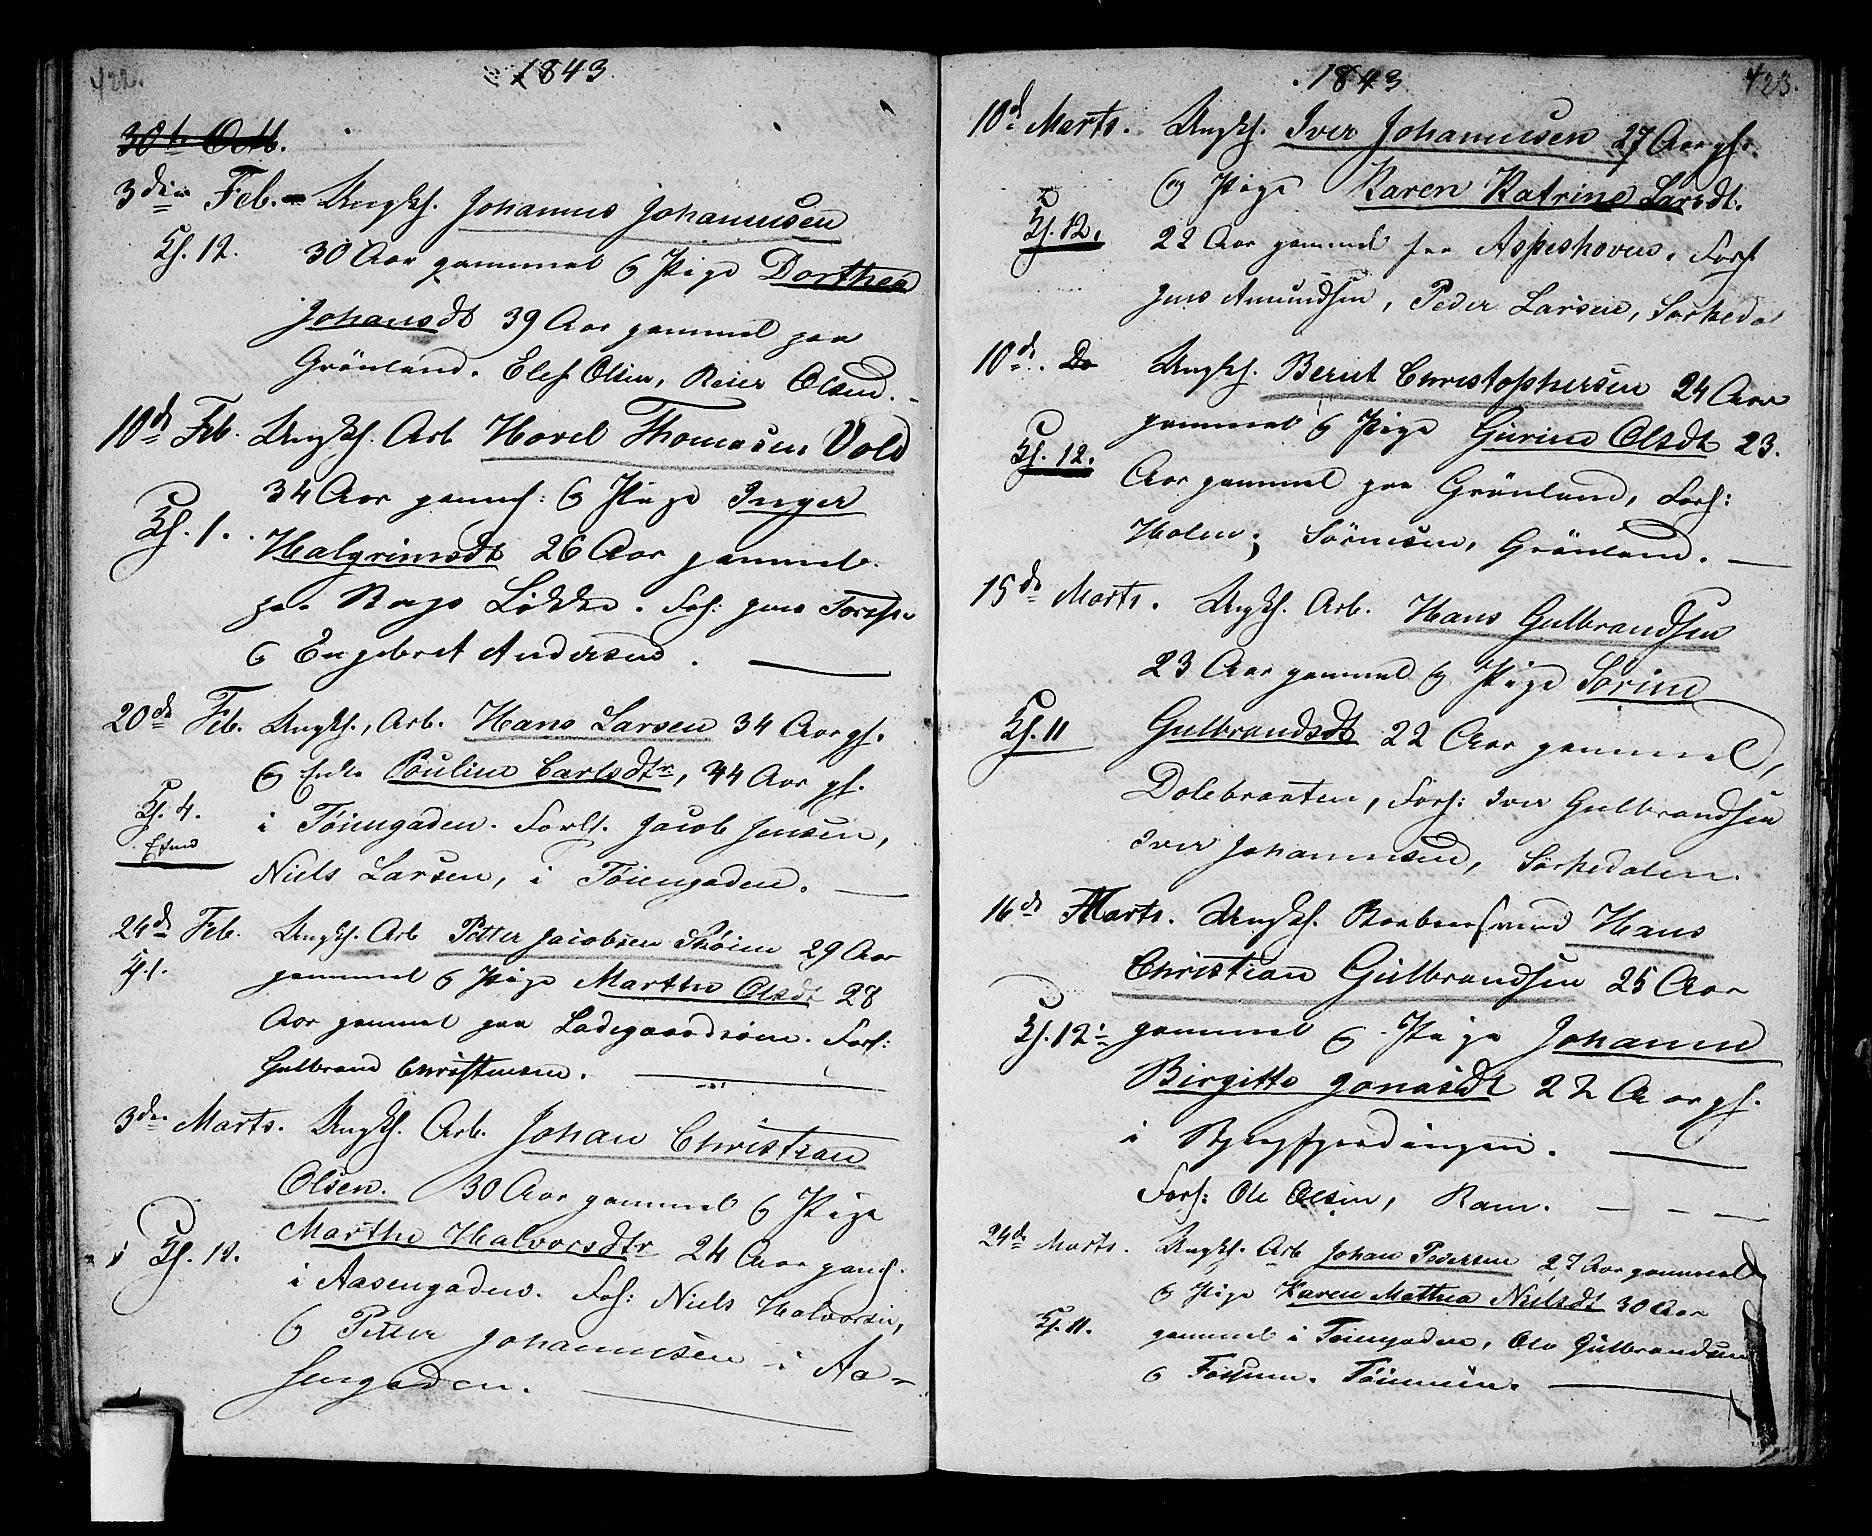 422.
1843
30te Octb.
3die Feb. Ungk. Johannes Johannesen
Kl. 12. 30 Aar gammel og Pige Dorthea
Johansdt 39 Aar gammel paa
Grönland. Elef Olsen, Reier Olsen.
10de Feb. Ungk. Arb Hovel Thomesen Vold
34 Aar gamm: og Pige Inger
Kl. 1. Halgrimsdt 26 Aar gammel
paa Løkke. For: Jens
og Engebret Andersen.
20de Feb. Ungk., Arb. Hans Larsen 34 Aar gl.
og Enke Pauline Carlsdtr, 44 Aar gl.
Kl. 4. i Töiengaden. Forl. Jacob Jensen,
Niels Larsen, i Töiengaden.
24de Feb. Ungk. Arb Petter Jacobsen Stöien 29 Aar
Kl. 1. gammel og Pige Marthe Olsdr 28
Aar gammel paa Ladegaardsöen. Forl:
Gulbrand Christensen.
3die Marts. Ungk. Arb. Johan Christian
Olsen. 30 Aar gammel og Pige
Marthe Halvorsdtr 24 Aar gaml.
Kl. 12. i Aasengaden. For: Niels Halvorsen,
og Petter Johannesen i Aa-
sengaden.
1843
423.
10de Marts. Ungk. Iver Johannesen 27 Aar gl.
og Pige Karen Katrine Larsdt.
Kl. 12. 22 Aar gammel fra Aspeshoven. Forl
Jens Amundsen, Peder Larsen, Sorkeda
10de Do Ungk. Bernt Christophersen 24 Aar
gammel og Pige Gurine Olsdt 23.
Kl. 12. Aar gammel paa Grönland, Forl:
Holen, Sörensen, Grönland.
15de Marts. Ungk. Arb. Hans Gulbrandsen
23 Aar gammel og Pige Sörine
Kl. 11 Gulbrandsdt 22 Aar gammel,
Dolebraaten, Forl: Iver Gulbrandsen
Iver Johannesen, Sörkedalen.
16de Marts. Ungk. Hans
Christian Gulbrandsen 25 Aar
Kl. 12 gammel og Pige Johanne
Birgitte Jonasdt 22 Aar gl.
i Bjergfjerdingen.
Forl: Ole Olsen, Ram.
24de Marts. Ungk. Arb Johan Pedersen 27 Aar gammel
og Pige Karen Mathea Nielsdt 30 Aar
Kl. 11. gammel i Töiengaden, Ole Gulbrandsen
og Fossum. Töiengaden.